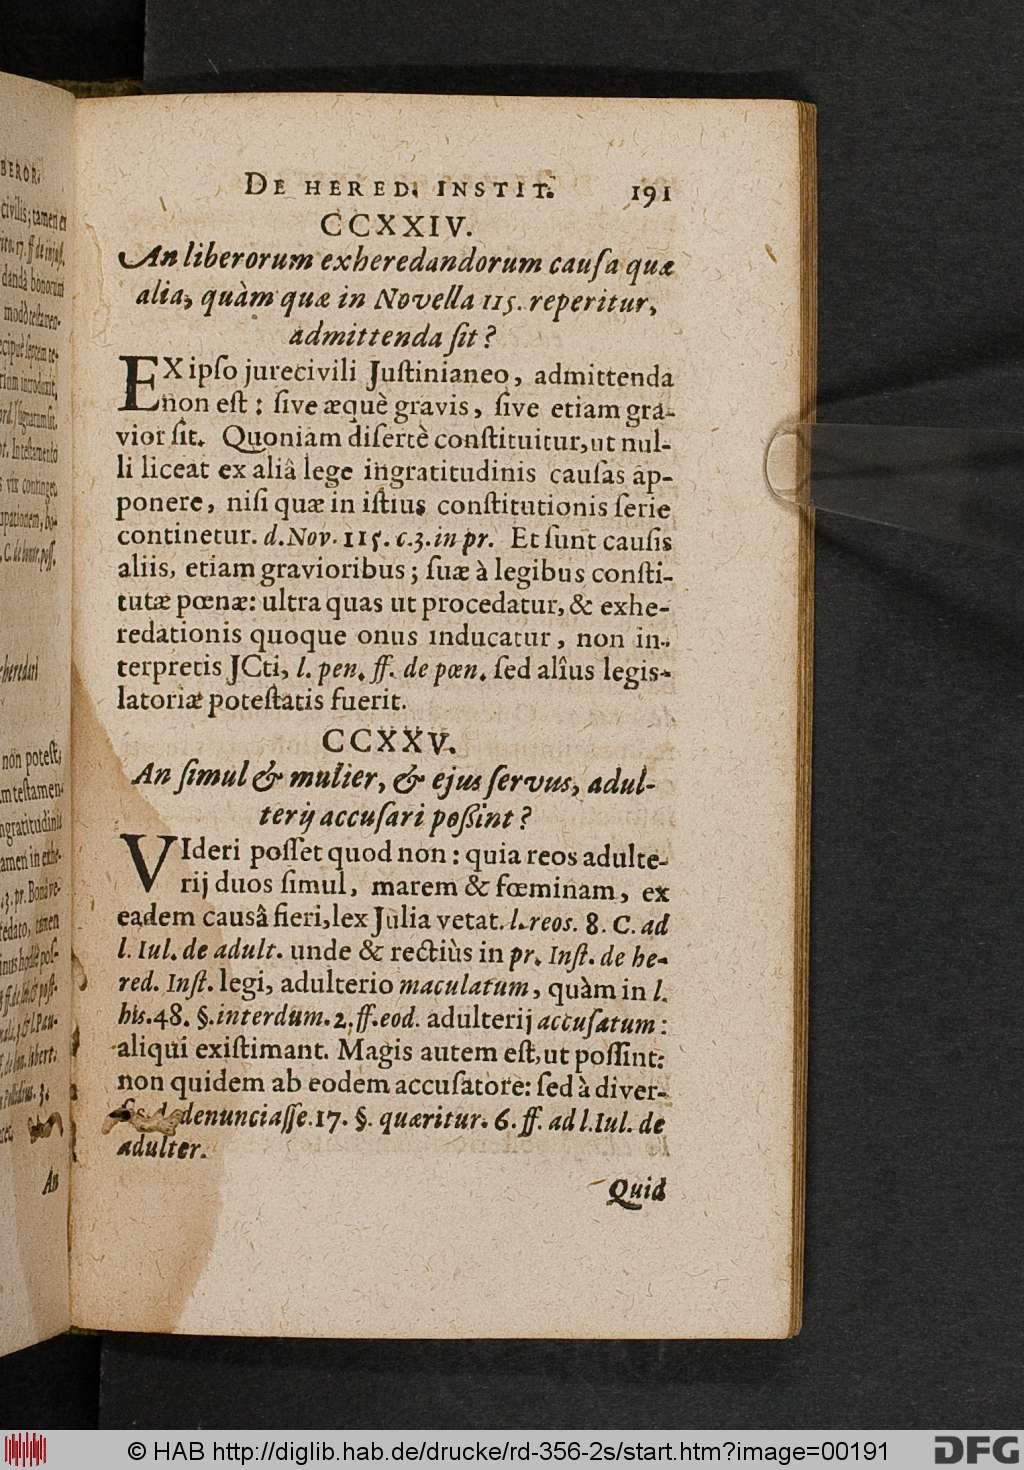 DE HERED. INSTIT. 191
CCXXIV.
An liberorum exheredandorum cauſa quæ
alia, quàm quæ in Novella 115. reperitur,
admittenda ſit?
EX ipſo jurecivili Juſtinianeo, admittenda
non eſt: ſive æquè gravis, ſive etiam gra-
vior ſit. Quoniam diſertè conſtituitur, ut nul-
li liceat ex aliâ lege ingratitudinis cauſas ap-
ponere, niſi quæ in iſtius conſtitutionis ſerie
continetur. d. Nov. 115. c. 3. in pr. Et ſunt cauſis
aliis, etiam gravioribus; ſuæ à legibus conſti-
tutæ pœnæ: ultra quas ut procedatur, & exhe-
redationis quoque onus inducatur, non in-
terpretis JCti, l. pen. ff. de pœn. ſed alîus legis-
latoriæ poteſtatis fuerit.
CCXXV.
An ſimul & mulier, & ejus ſervus, adul-
terij accuſari poſsint?
VIderi poſſet quod non: quia reos adulte-
rij duos ſimul, marem & fœminam, ex
eadem causâ fieri, lex Julia vetat. l. reos. 8. C. ad
l. Iul. de adult. unde & rectiùs in pr. Inſt. de he-
red. Inſt. legi, adulterio maculatum, quàm in l.
his. 48. §. interdum. 2. ff. eod. adulterij accuſatum:
aliqui exiſtimant. Magis autem eſt, ut poſſint:
non quidem ab eodem accuſatore: ſed à diver-
denunciaſſe. 17. §. quæritur. 6. ff. ad l. Iul. de
adulter.
Quid
© HAB http://diglib.hab.de/drucke/rd-356-2s/start.htm?image=00191
DFG